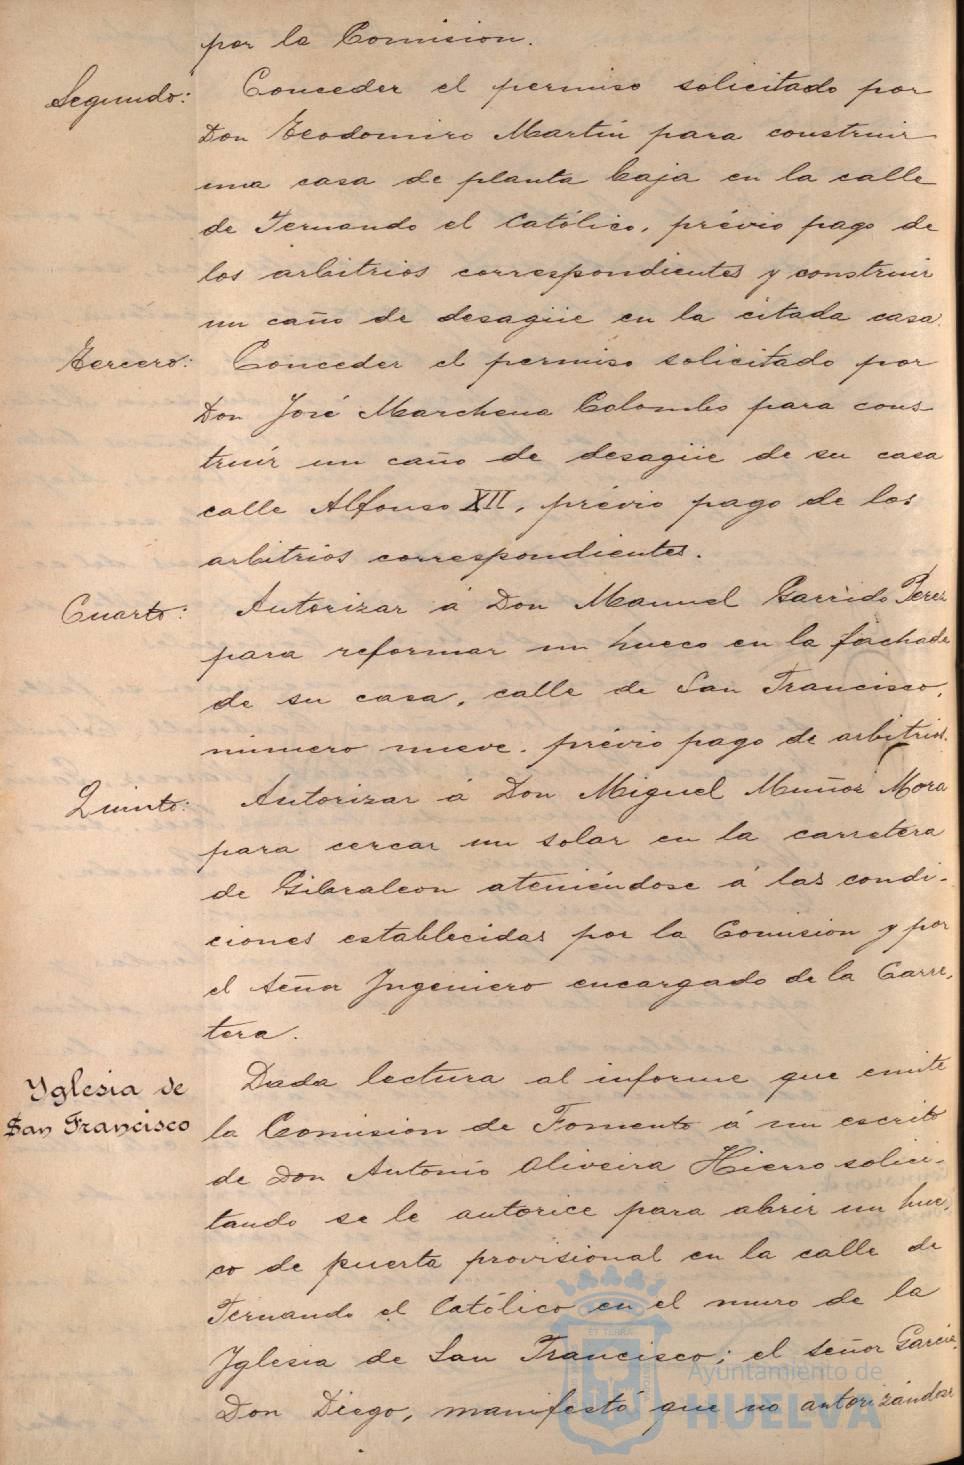 por la Comision.
Segundo: Conceder el permiso solicitado por
Don Teodomiro Martín para construir
una casa de planta baja en la calle
de Fernando el Católico, prévio pago de
los arbitrios correspondientes y construir
un caño de desagüe en la citada casa.
Tercero: Conceder el permiso solicitado por
Don José Marchena Colombo para cons
truír un caño de desagüe de su casa
calle Alfonso XII, prévio pago de los
arbitrios correspondientes.
Cuarto: Autorizar á Don Manuel Garrido Perez
para reformar un hueco en la fachada
de su casa, calle de San Francisco,
número nueve. prévio pago de arbitrios.
Quinto: Autorizar á Don Miguel Muñoz Mora
para cercar un solar en la carretera
de Gibraleon ateniéndose á las condi-
ciones establecidas por la Comision y por
el Señor Ingeniero encargado de la Carre-
tera.
Yglesia de
San Francisco
Dada lectura al informe que emite
la Comision de Fomento á un escrito
de Don Antonio Oliveira Hierro solici-
tando se le autorice para abrir un hue-
co de puerta provisional en la calle de
Fernando el Católico en el muro de la
Yglesia de San Francisco; el Señor Garcia,
Don Diego, manifestó que no autorizándose
Ayuntamiento de
HUELVA